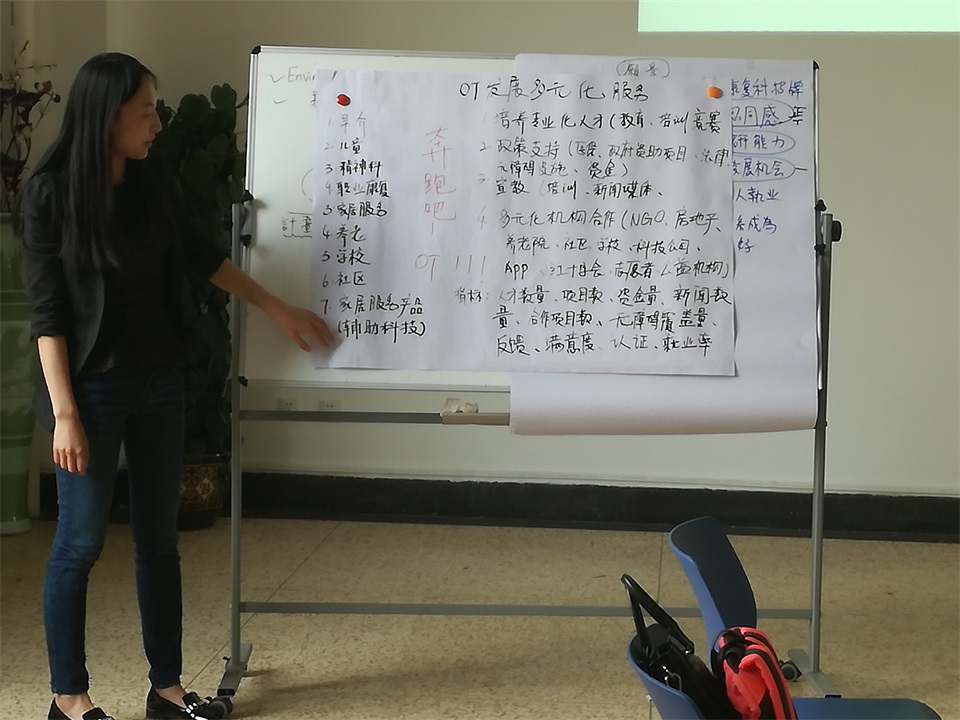 愿景
OT发展多元化服务
1. 早介
2. 儿童
3 精神科
4 职业康复
3 家居服务
4 养老
5 学校
6 社区
7. 家居服务产品
(辅助科技)
奔
跑
吧
!
OT !!!
1 培养专业化人才(教育、培训、竞赛
2 政策支持(医保、政府资助项目、法律
无障碍设施、资金)
宣教 (培训、新闻媒体、
4 多元化机构合作(NGO、房地产、
养老院、社区、学校、科技公司、
App、红十字会、志愿者、公益机构)
指标: 人才数量、项目数、资金量、新闻数
量、合作项目数、无障碍覆盖量、
反馈、满意度、认证、就业率
Envir
计画
康复科招牌
认同感
研能力
发展机会
人執业
系成為
好